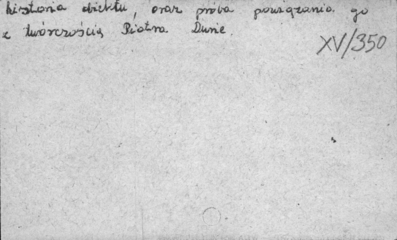 historia obiektu, oraz próba powiązania go
z twórczością Piotra Dunie.
XV/350